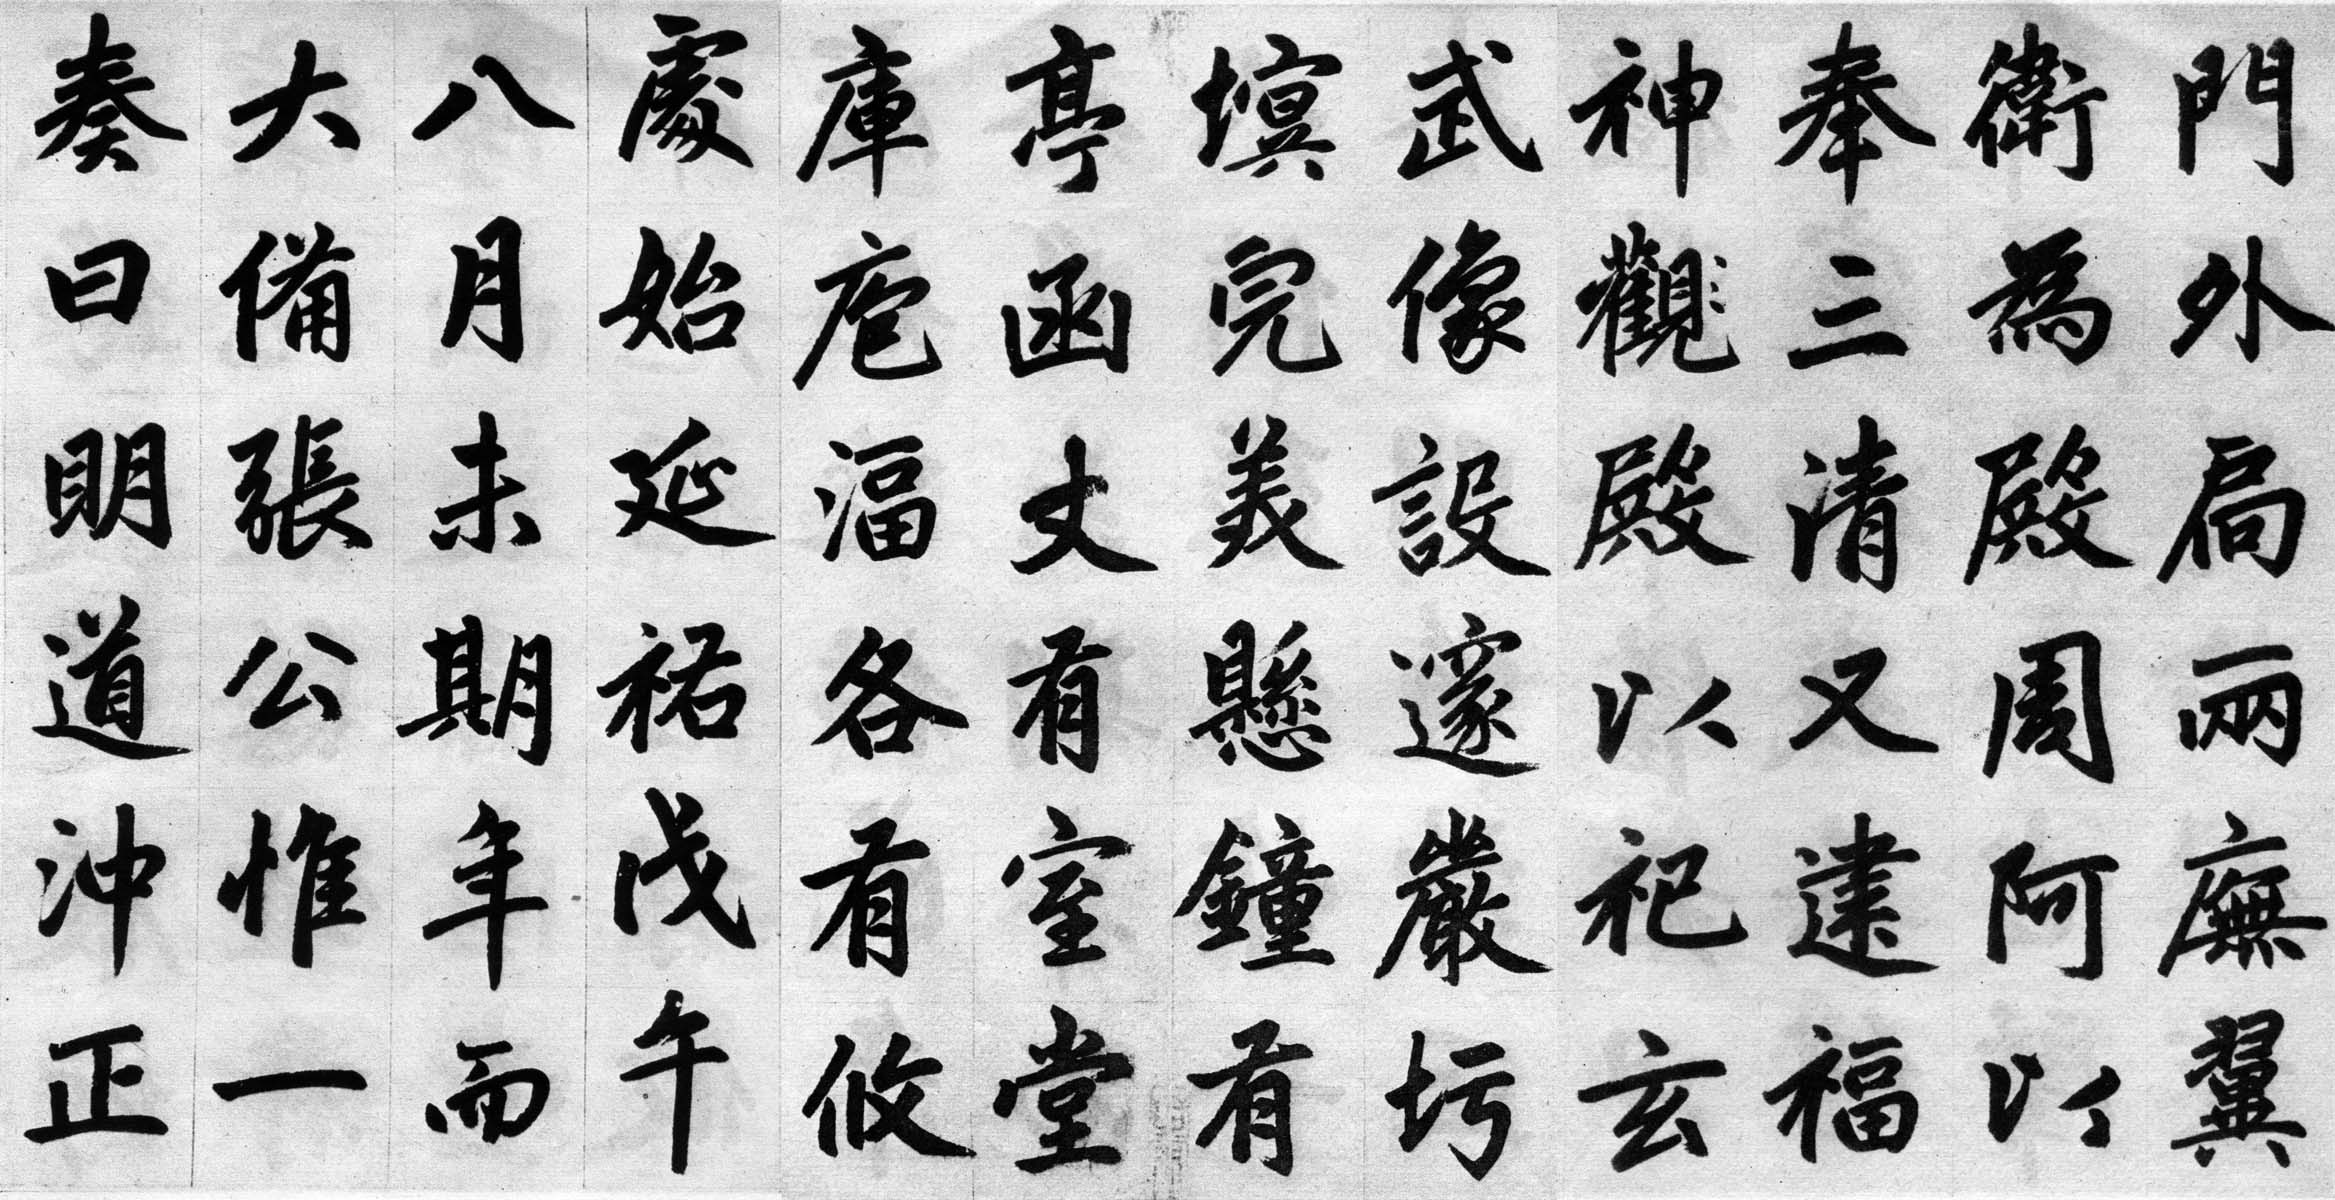 門外扄兩廡翼
衛為殿周阿以
奉三清又建福
神觀殿以祀玄
武像設邃嚴圬
墁完美懸鐘有
亭函丈有室堂
庫庖湢各有攸
處始延祐戊午
八月未期年而
大備張公惟一
奏曰明道沖正